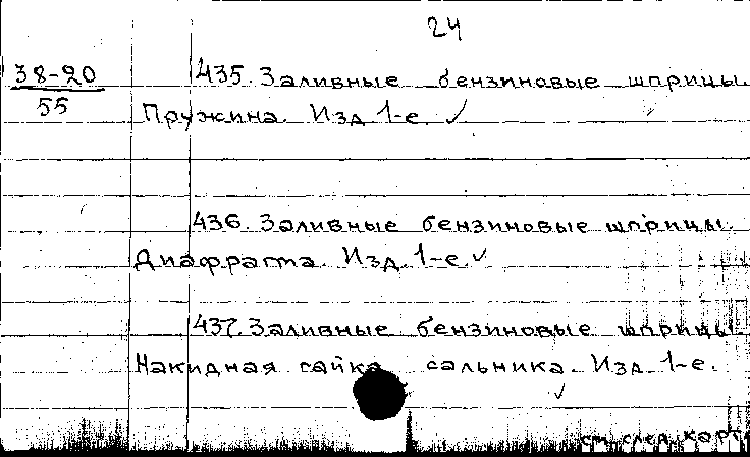 24
38-20
55
435. Заливные бензиновые шприцы.
Пружина. Изд 1-е. ✓
436. Заливные бензиновые шприцы.
Диафрагма. Изд. 1-е. ✓
437. Заливные бензиновые шприцы.
Накидная гайка сальника. Изд 1-е.
✓
см. след. карт